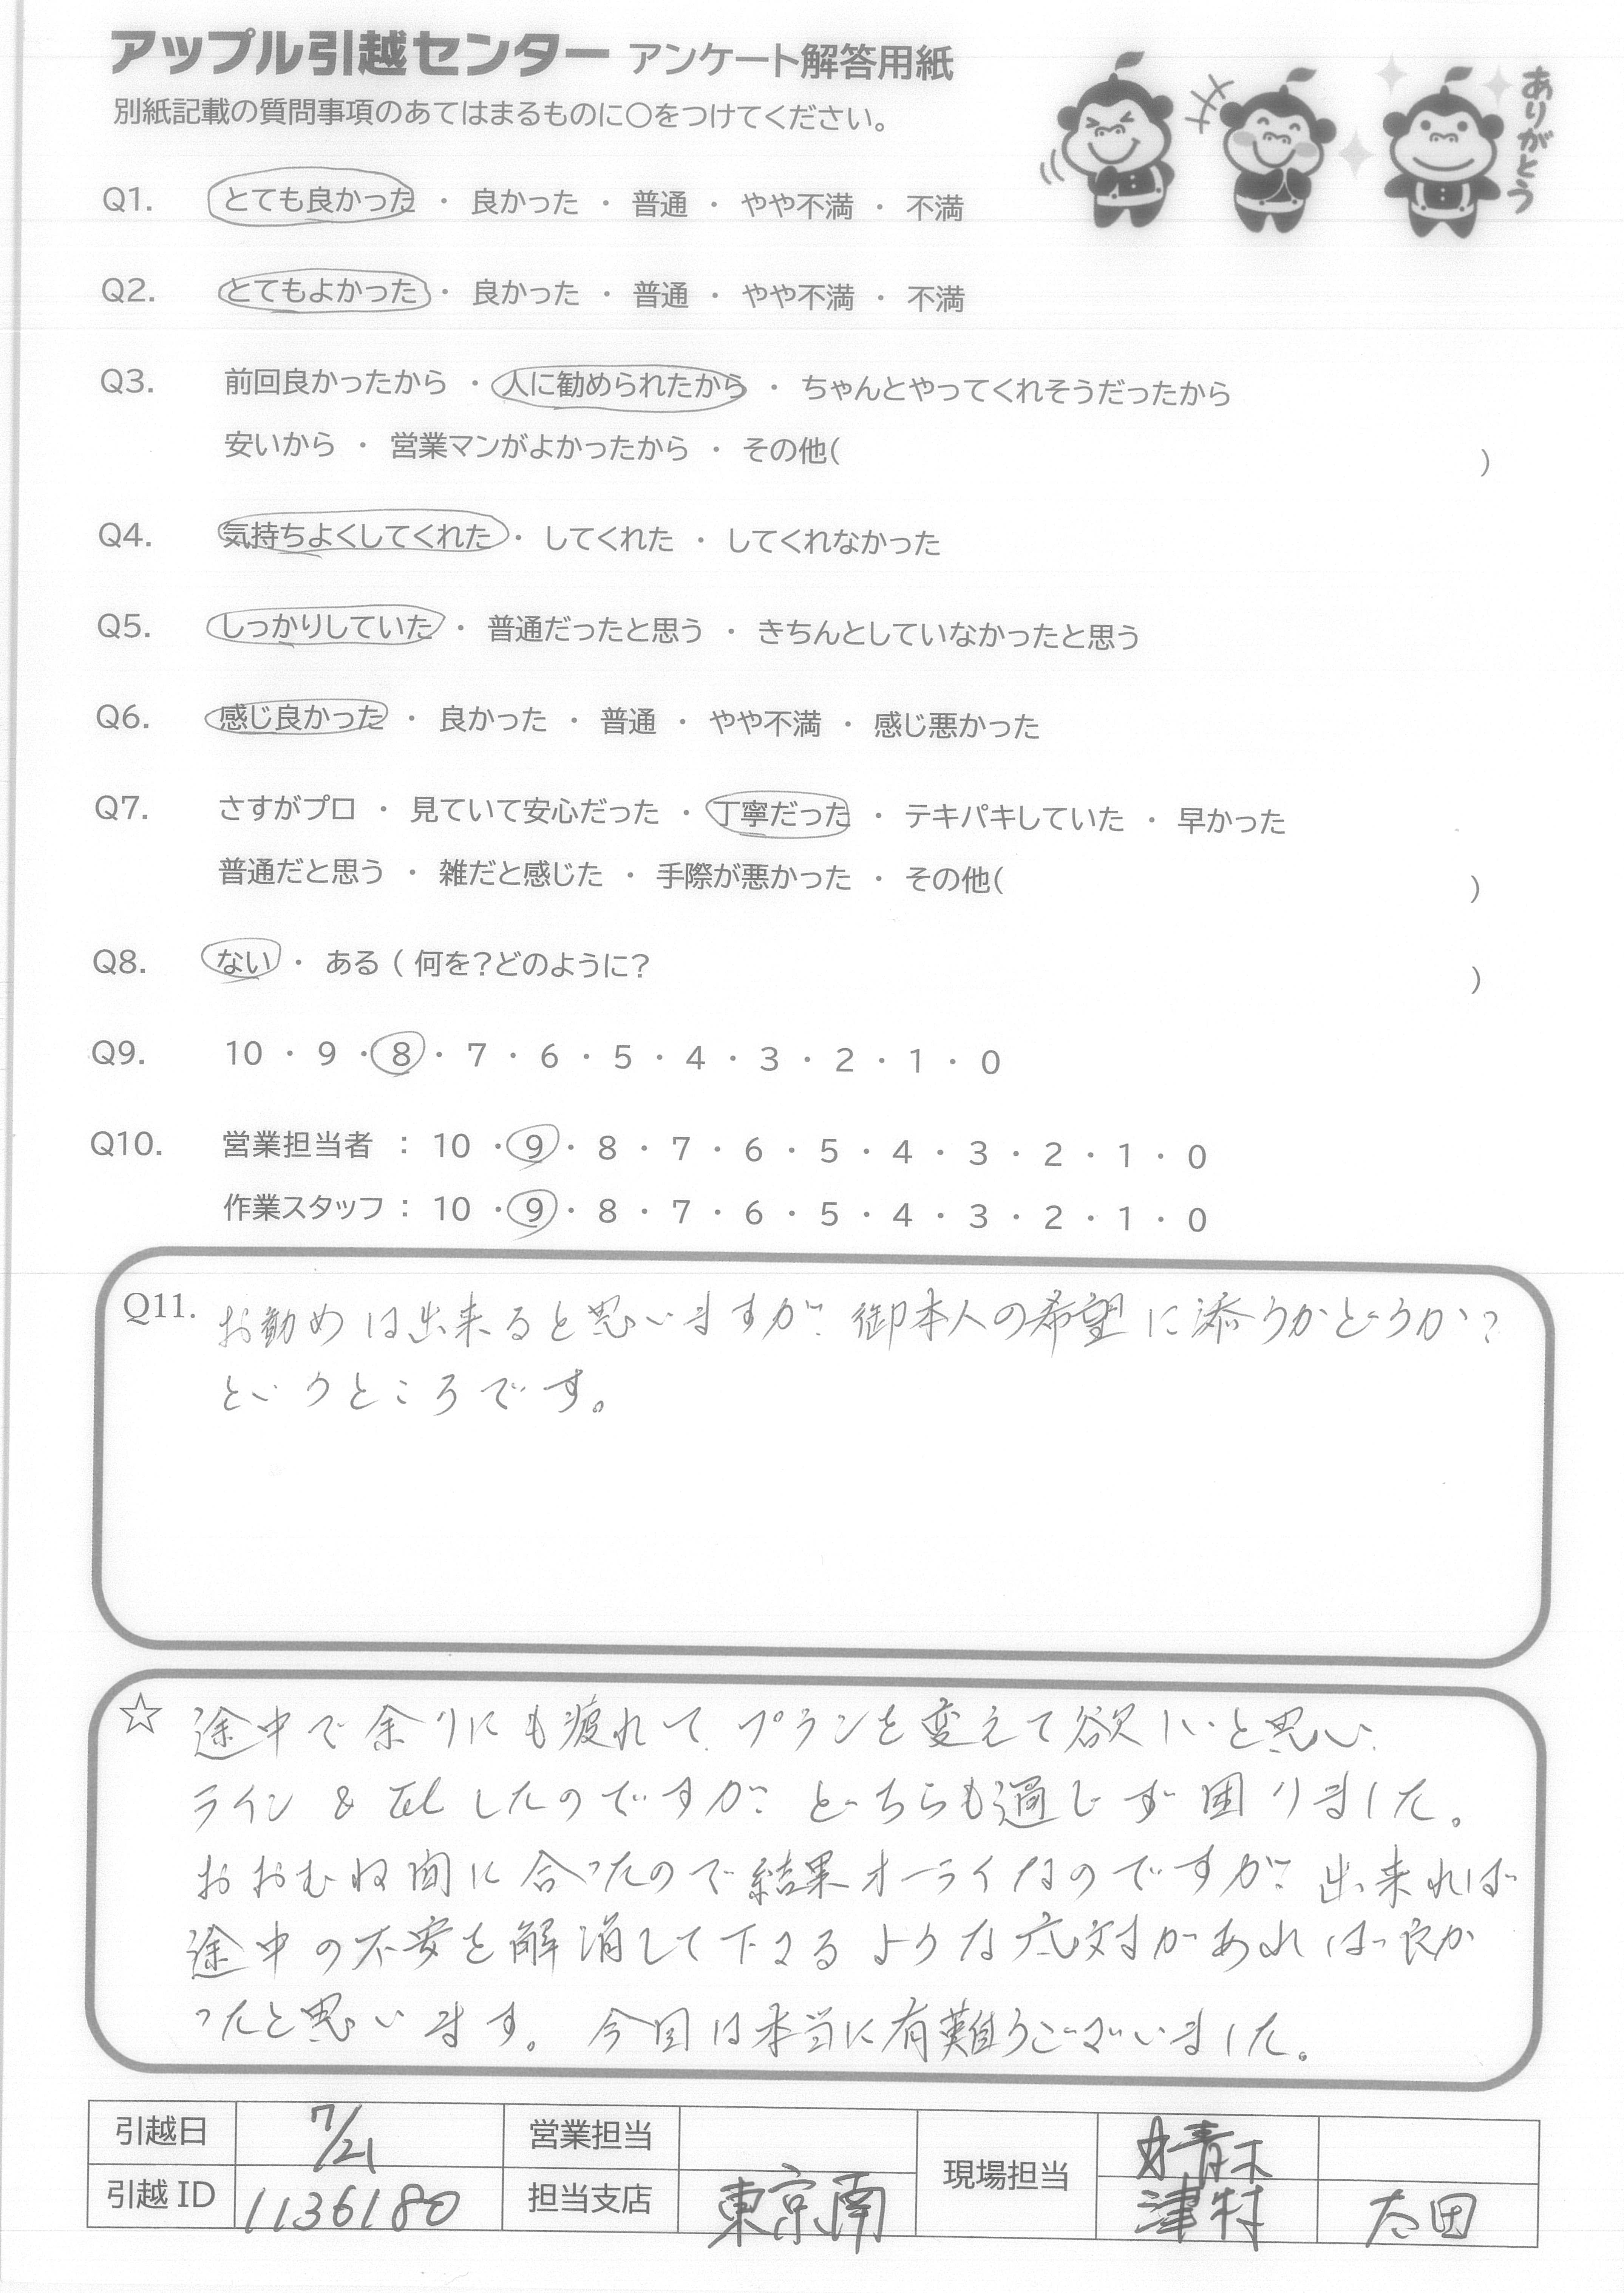 アップル引越センター アンケート解答用紙
別紙記載の質問事項のあてはまるものに○をつけてください。
ありがとう
Q1. とても良かった ・ 良かった ・ 普通 ・ やや不満 ・ 不満
Q2. とてもよかった ・ 良かった ・ 普通 ・ やや不満 ・ 不満
Q3. 前回良かったから ・ 人に勧められたから ・ ちゃんとやってくれそうだったから
安いから ・ 営業マンがよかったから ・ その他( )
Q4. 気持ちよくしてくれた ・ してくれた ・ してくれなかった
Q5. しっかりしていた ・ 普通だったと思う ・ きちんとしていなかったと思う
Q6. 感じ良かった ・ 良かった ・ 普通 ・ やや不満 ・ 感じ悪かった
Q7. さすがプロ ・ 見ていて安心だった ・ 丁寧だった ・ テキパキしていた ・ 早かった
普通だと思う ・ 雑だと感じた ・ 手際が悪かった ・ その他( )
Q8. ない ・ ある ( 何を?どのように? )
Q9. 10 ・ 9 ・ 8 ・ 7 ・ 6 ・ 5 ・ 4 ・ 3 ・ 2 ・ 1 ・ 0
Q10. 営業担当者 : 10 ・ 9 ・ 8 ・ 7 ・ 6 ・ 5 ・ 4 ・ 3 ・ 2 ・ 1 ・ 0
作業スタッフ : 10 ・ 9 ・ 8 ・ 7 ・ 6 ・ 5 ・ 4 ・ 3 ・ 2 ・ 1 ・ 0
Q11. お勧めは出来ると思いますが、御本人の希望に添うかどうか?
というところです。
☆ 途中で余りにも疲れて、プランを変えて欲しいと思い、
ライン & Telしたのですが、どちらも通じず困りました。
おおむね間に合ったので結果オーライなのですが、出来れば
途中の不安を解消して下さるような応対があれば良か
ったと思います。今回は本当に有難うございました。
引越日 7/21 営業担当 現場担当 青木
引越ID 1136180 担当支店 東京南 津村 太田